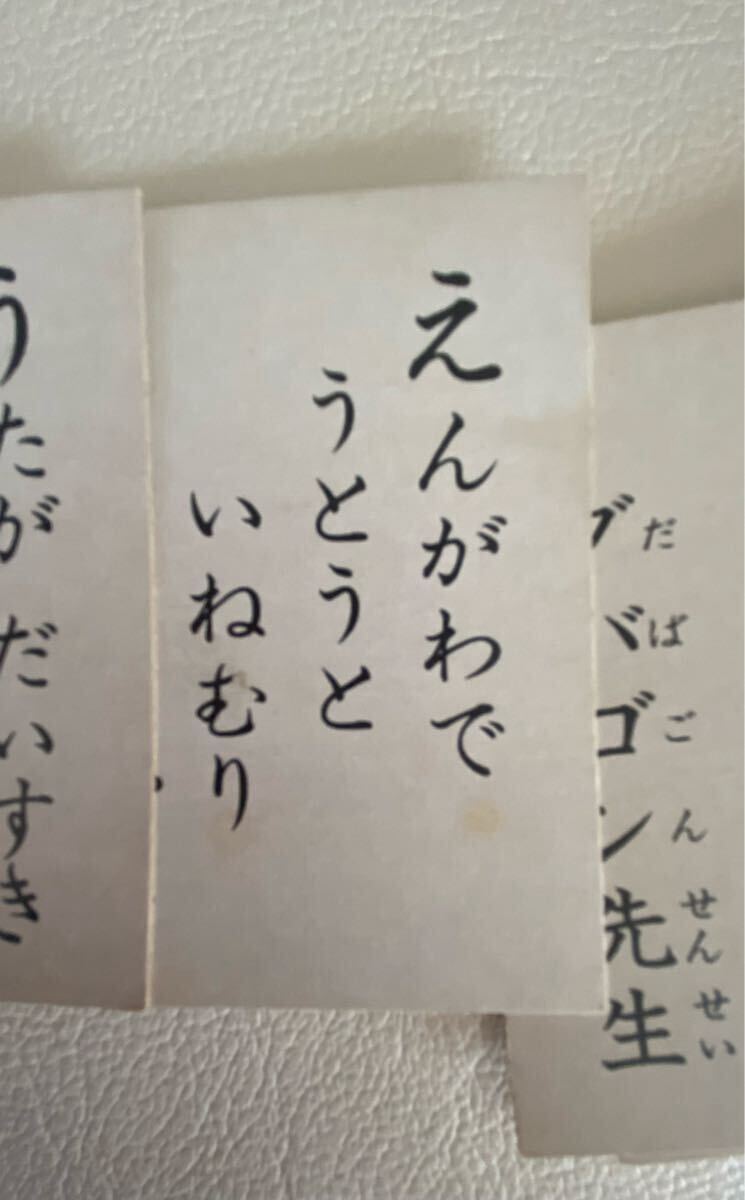 えんがわで
うとうと
いねむり
うたが だいすき
ダバゴン先生
だばごんせんせい